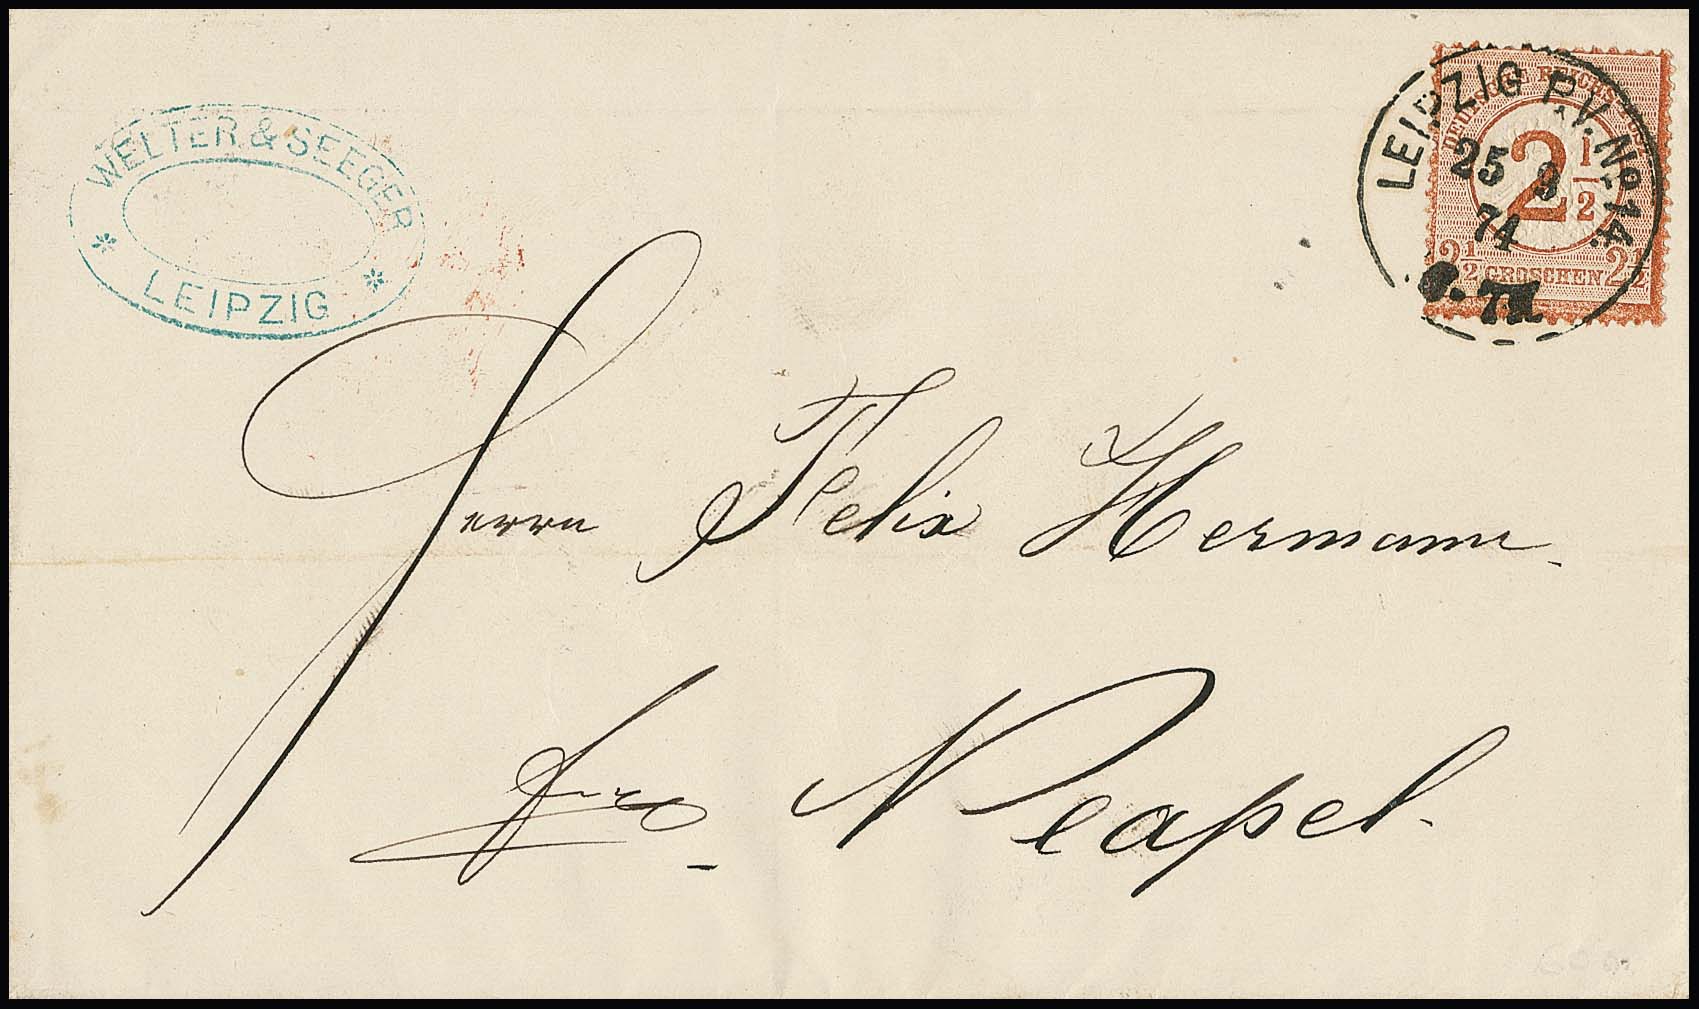 WELTER & SEEGER
* LEIPZIG *
LEIPZIG P.V. No 14.
25 3
74
DEUTSCHE REICHS-POST
2 1/2
2 1/2 GROSCHEN 2 1/2
Herrn Felix Hermann.
Fro Neapel.